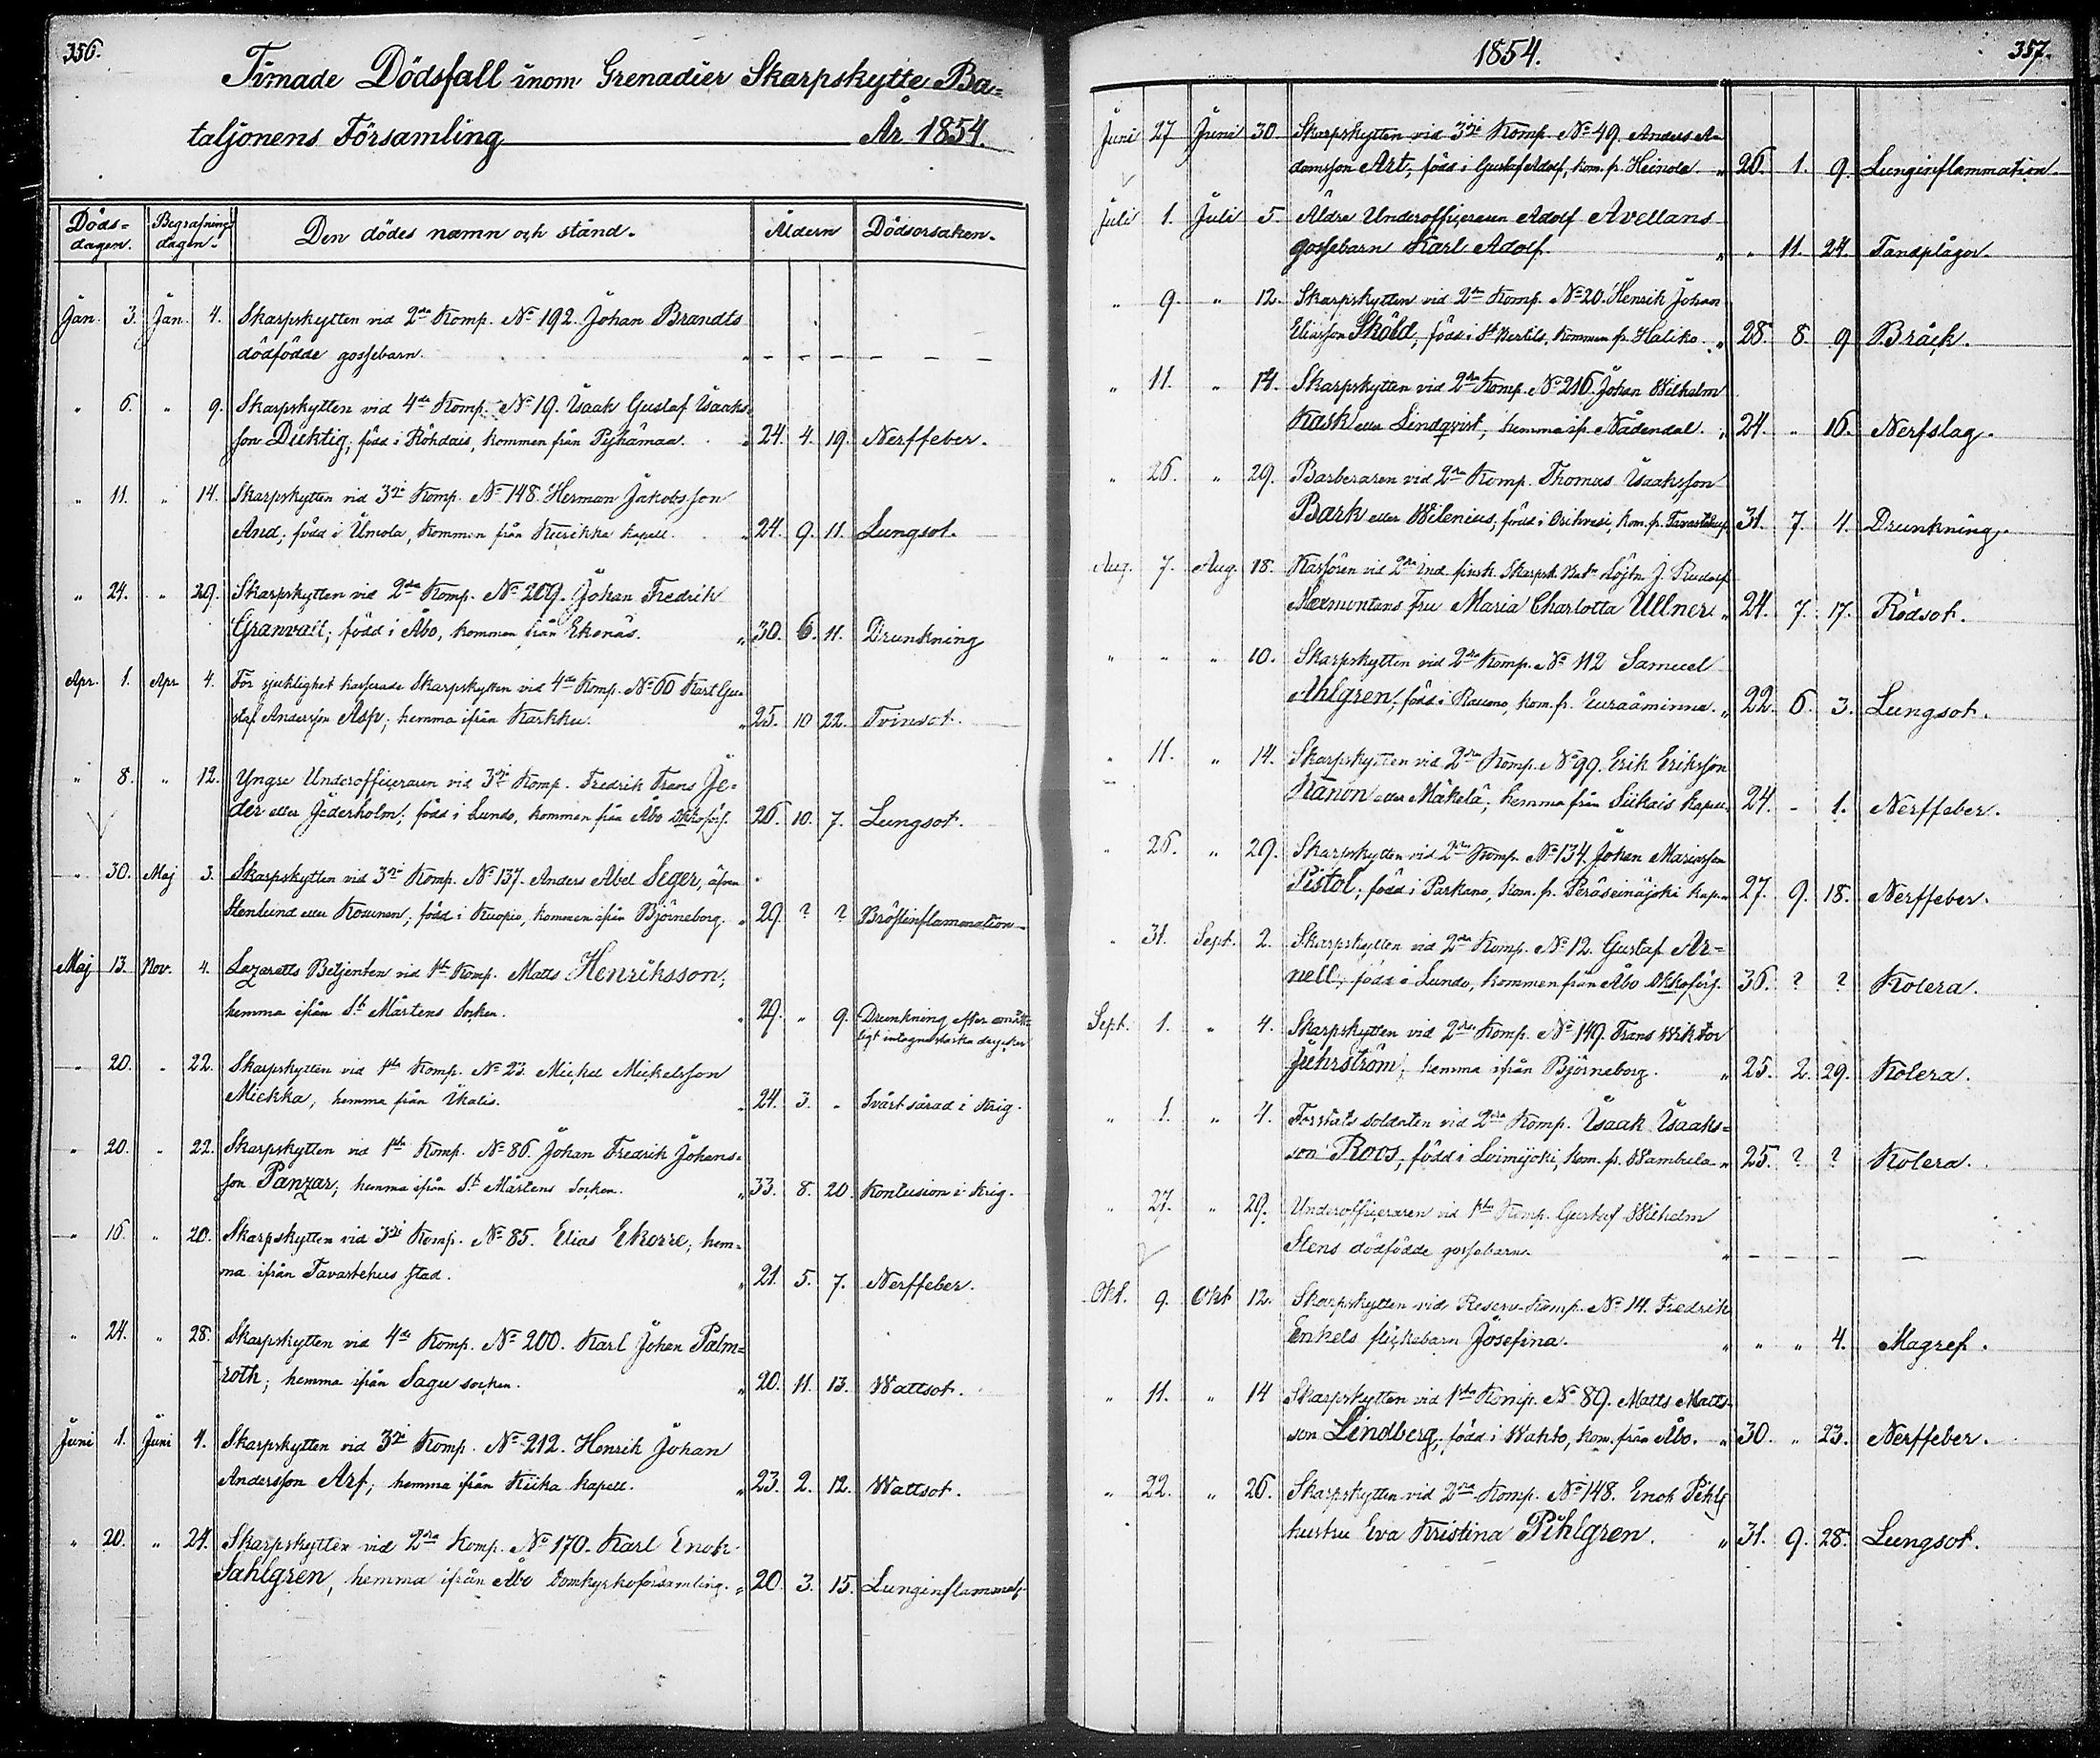 356.
Timade Dödsfall inom Grenadier Skarpskytte Ba=
taljonens Församling År 1854.
Döds= dagen. Begrafnings dagen. Den dödes namn och stånd. Åldern Dödsorsaken.
Jan. 3. Jan. 4. Skarpskytten vid 2dra Komp. No 192. Johan Brandts
dödfödde gossebarn. " – – – – – –
" 6. " 9. Skarpskytten vid 4de Komp. No 19. Isaak Gustaf Isaaks
son Ducktig, född i Röhdais, kommen från Pyhämaa. " 24. 4. 19. Nerffeber.
" 11. " 14. Skarpskytten vid 3dje Komp. No 148. Herman Jakobsson
And; född i Umola, kommen från Kurikka kapell. " 24. 9. 11. Lungsot.
" 24. " 29. Skarpskytten vid 2dra Komp. No 209. Johan Fredrik
Granvall; född i Åbo, kommen från Ekenäs. " 30. 6. 11. Drunkning
Apr. 1. Apr 4. För sjuklighet kasserade Skarpskytten vid 4de Komp. No 60 Karl Gu=
staf Andersson Asp; hemma ifrån Karkku. " 25. 10 22. Tvinsot.
" 8. " 12. Yngre Underofficeraren vid 3dje Komp. Fredrik Frans Je=
der eller Jederholm; född i Lundo, kommen från Åbo Dkkoförs. 26. 10. 7. Lungsot.
" 30. Maj 3. Skarpskytten vid 3dje Komp. No 137. Anders Abel Seger, äfven
Stenlund eller Kosunen; född i Kuopio, kommen ifrån Björneborg. " 29. ? ? Bröstinflammation
Maj 13. Nov. 4. Lazaretts Betjenten vid 1sta Komp. Matts Henriksson;
hemma ifrån St Mårtens socken. " 29. " 9. Drunkning efter omått=
ligt intagna starka drycker
" 20. " 22. Skarpskytten vid 1sta Komp. No 23. Mickel Mickelsson
Mickka, hemma från Ikalis. " 24. 3. " Svårt sårad i Krig.
" 20. " 22. Skarpskytten vid 1sta Komp. No 86. Johan Fredrik Johans=
son Panzar; hemma ifrån St Mårtens socken. " 33. 8. 20. Kontusion i Krig.
" 16. " 20. Skarpskytten vid 3dje Komp. No 85. Elias Ekorre, hem=
ma ifrån Tavastehus stad. " 21. 5. 7. Nerffeber.
" 24. " 28. Skarpskytten vid 4de Komp. No 200. Karl Johan Palm=
roth; hemma ifrån Sagu socken. " 20. 11. 13. Wattsot.
Juni 1. Juni 4. Skarpskytten vid 3dje Komp. No 212. Henrik Johan
Andersson Arf; hemma ifrån Kiika kapell. " 23. 2. 12. Wattsot.
" 20. " 24. Skarpskytten vid 2dra Komp. No 170. Karl Enok
Sahlgren, hemma ifrån Åbo Domkyrkoförsamling. " 20. 3. 15. Lunginflammat.
1854. 357.
Juni 27 Juni 30. Skarpskytten vid 3dje Komp. No 49. Anders A=
damsson Art, född i Gustaf Adolf, kom. fr. Heinola. " 26. 1. 9. Lunginflammation.
Juli 1. Juli 5. Äldre Underofficeraren Adolf Avellans
gossebarn Karl Adolf. " " 11. 24. Tandplågor.
" 9. " 12. Skarpskytten vid 2dra Komp. No 20. Henrik Johan
Eliasson Sköld, född i St Bertils, kommen fr. Haliko. " 28. 8. 9 Bråck.
" 11. " 14. Skarpskytten vid 2dra Komp. No 216. Johan Wilhelm
Kask eller Lindqvist, hemma ifr. Nådendal. " 24. " 16. Nerfslag.
" 26. " 29. Barberaren vid 2dra Komp. Thomas Isaaksson
Bark eller Wilenius, född i Orihvesi, kom. fr. Tavastehus, 31. 7. 4. Drunkning.
Aug. 7. Aug. 18. Kassören vid 2dra ind. finsk. Skarpsk. Batn Löjtn. J. Rudolf
Maria Charlotta Ullner " 24. 7. 17. Rödsot.
" " " 10. Skarpskytten vid 2dra Komp. No 112 Samuel
Ahlgren, född i Raumo, kom. fr. Euraåminne. " 22. 6. 3. Lungsot.
" 11. " 14. Skarpskytten vid 2dra Komp. No 99. Erik Eriksson
Kanon eller Mäkelä; hemma från Siikais kapell, 24. - 1. Nerffeber.
" 26. " 29. Skarpskytten vid 2dra Komp. No 134. Johan Mariasson
Pistol; född i Parkano, kom. fr. Peräseinäjoki kap. " 27. 9. 18. Nerffeber.
" 31. Sept. 2. Skarpskytten vid 2dra Komp. No 12. Gustaf Ar=
nell, född i Lundo, kommen från Åbo Dkkoförs. 36. ? ? Kolera.
Sept. 1. " 4. Skarpskytten vid 2dra Komp. No 149. Frans Wiktor
Juhrström, hemma ifrån Björneborg. " 25. 2. 29. Kolera.
" 1. " 4. soldaten vid 2dra Komp. Isaak Isaaks=
son Roos, född i Loimijoki, kom. fr. Wambula " 25. ? ? Kolera.
" 27. " 29. Underofficeraren vid 1sta Komp. Gustaf Wilhelm
Stens dödfödde gossebarn. " – – – –
Okt. 9. Okt 12. Skarpskytten vid Reserv-Komp. No 14. Fredrik
Enkels flickebarn Josefina. " " " 4. Magref.
" 11. " 14 Skarpskytten vid 1sta Komp. No 89. Matts Matts=
son Lindberg, född i Wahto, kom. från Åbo. " 30. " 23. Nerffeber.
" 22. " 26. Skarpskytten vid 2dra Komp. No 148. Enok Pihlg
hustru Eva Kristina Pihlgren. " 31. 9. 28. Lungsot.